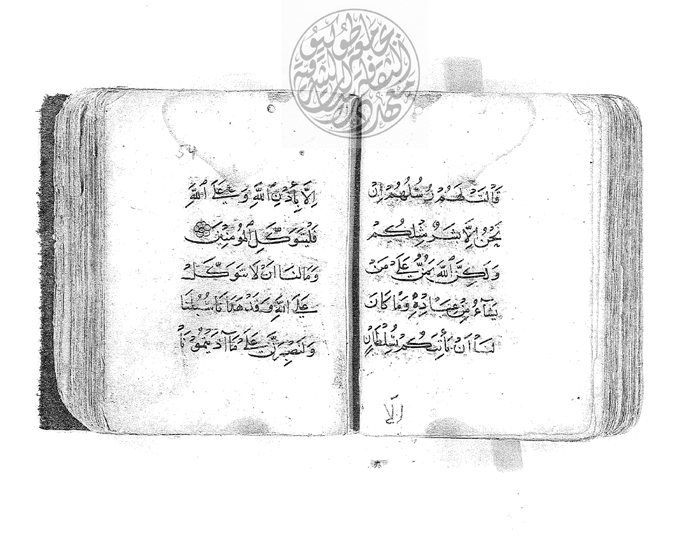 قَالَتْ لَهُمْ رُسُلُهُمْ اِنْ
نَحْنُ اِلَّا بَشَرٌ مِثْلُكُمْ
وَلَكِنَّ اللّٰهَ يَمُنُّ عَلَى مَنْ
يَشَاءُ مِنْ عِبَادِهِ وَمَا كَانَ
لَنَا اَنْ نَأْتِيَكُمْ بِسُلْطَانٍ
اِلَّا
54
اِلَّا بِاِذْنِ اللّٰهِ وَعَلَى اللّٰهِ
فَلْيَتَوَكَّلِ الْمُؤْمِنُونَ
وَمَا لَنَا اَنْ لَا نَتَوَكَّلَ
عَلَى اللّٰهِ وَقَدْ هَدَانَا سُبُلَنَا
وَلَنَصْبِرَنَّ عَلَى مَا آذَيْتُمُونَا